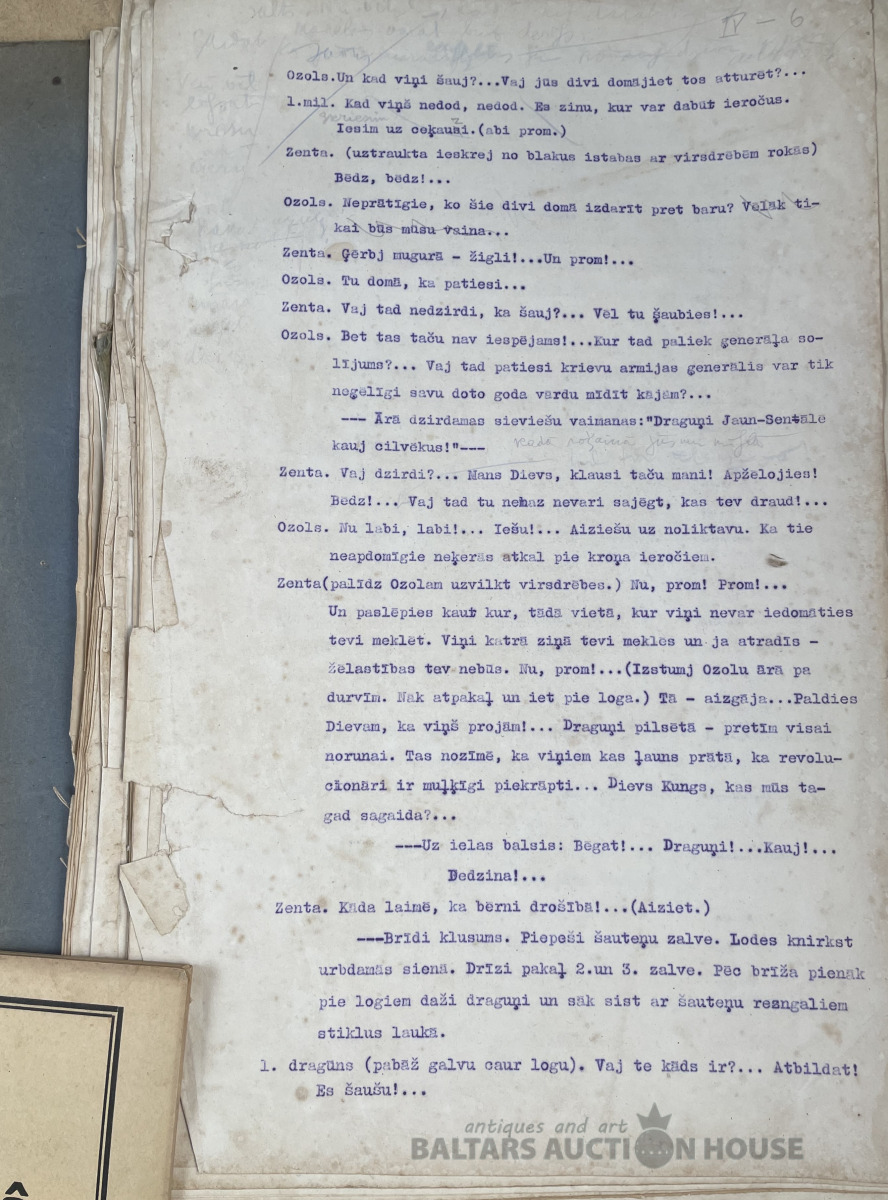 IV - 6
Ozols. Un kad viņi šauj?...Vaj jūs divi domājiet tos atturēt?...
1.mil. Kad viņš nedod, nedod. Es zinu, kur var dabūt ieročus.
Iesim uz ceķauzi.(abi prom.)
Zenta. (uztraukta ieskrej no blakus istabas ar virsdrēbēm rokās)
Bēdz, bēdz!...
Ozols. Neprātīgie, ko šie divi domā izdarīt pret baru? Vēlāk ti-
kai būs mūsu vaina...
Zenta. Ģērbj mugurā - žigli!...Un prom!...
Ozols. Tu domā, ka patiesi...
Zenta. Vaj tad nedzirdi, ka šauj?... Vēl tu šaubies!...
Ozols. Bet tas taču nav iespējams!...Kur tad paliek ģenerāļa so-
lījums?... Vaj tad patiesi krievu armijas ģenerālis var tik
neģēlīgi savu doto goda vārdu mīdīt kājām?...
--- Ārā dzirdamas sieviešu vaimanas:"Draguņi Jaun-Sentāle
kauj cilvēkus!"---
Zenta. Vaj dzirdi?... Mans Dievs, klausi taču mani! Apželojies!
Bēdz!... Vaj tad tu nemaz nevari sajēgt, kas tev draud!...
Ozols. Nu labi, labi!... Iešu!... Aiziešu uz noliktavu. Ka tie
neapdomīgie neķeras atkal pie kroņa ieročiem.
Zenta(palīdz Ozolam uzvilkt virsdrēbes.) Nu, prom! Prom!...
Un paslēpies kaut kur, tādā vietā, kur viņi nevar iedomāties
tevi meklēt. Viņi katrā ziņā tevi meklēs un ja atradīs -
žēlastības tev nebūs. Nu, prom!...(Izstumj Ozolu ārā pa
durvīm. Nāk atpakaļ un iet pie loga.) Tā - aizgāja...Paldies
Dievam, ka viņš projām!... Draguņi pilsētā - pretīm visai
norunai. Tas nozīmē, ka viņiem kas ļauns prātā, ka revolu-
cionāri ir muļķīgi piekrāpti... Dievs Kungs, kas mūs ta-
gad sagaida?...
---Uz ielas balsis: Bēgat!... Draguņi!...Kauj!...
Dedzina!...
Zenta. Kāda laime, ka bērni drošībā!...(Aiziet.)
---Brīdi klusums. Piepeši šauteņu zalve. Lodes knirkst
urbdamās sienā. Drīzi pakaļ 2.un 3. zalve. Pēc brīža pienāk
pie logiem daži draguņi un sāk sist ar šauteņu rezngaliem
stiklus laukā.
1. dragūns (pabāž galvu caur logu). Vaj te kāds ir?... Atbildat!
Es šaušu!...
antiques and art
BALTARS AUCTION HOUSE